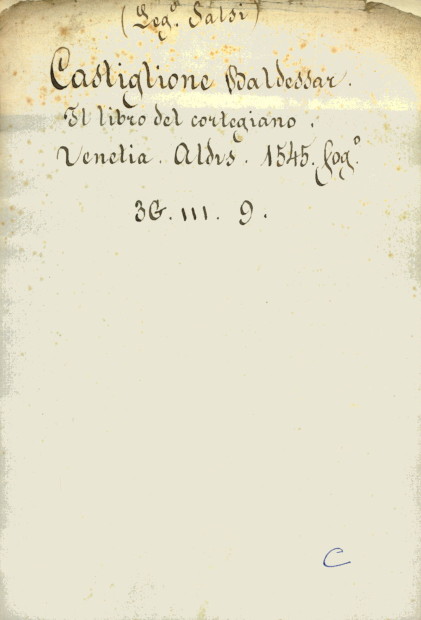 (Leg.º Salsi)
Castiglione Baldessar.
Il libro del cortegiano.
Venetia. Aldvs. 1545. fog.º
3G. III. 9.
C